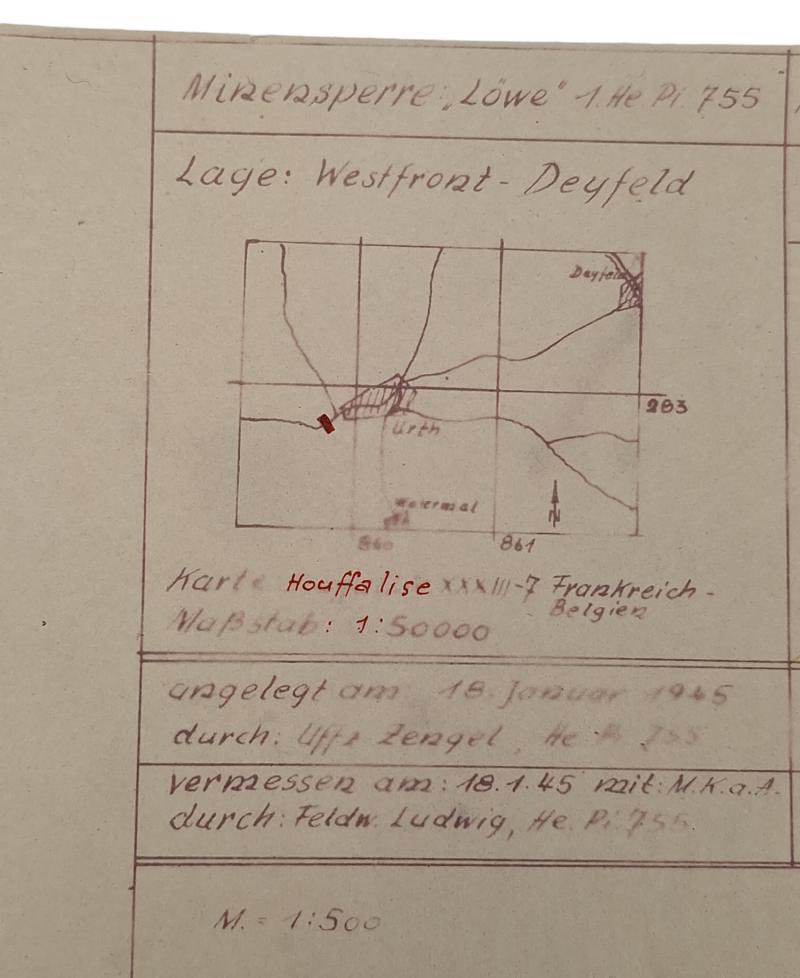 Minensperre „Löwe“ 1. He. Pi. 755
Lage: Westfront - Deyfeld
Deyfeld
283
Urth
860
861
N
Karte Houffalise XXXIII-7 Frankreich -
Belgien
Maßstab: 1:50000
angelegt am 18. Januar 1945
durch: Uffz Zengel, He Pi 755
vermessen am: 18.1.45 mit: M.K.a.A.
durch: Feldw. Ludwig, He. Pi. 755.
M. = 1:500